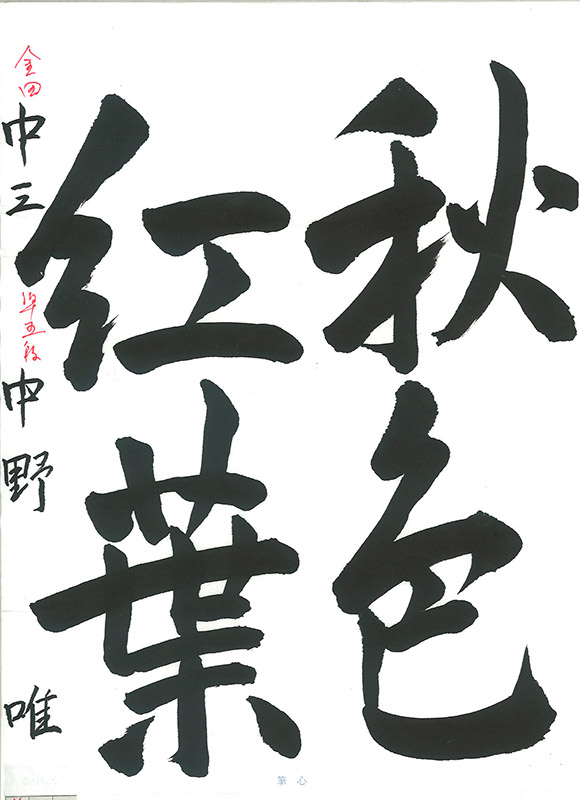 秋色
紅葉
金四 中三 準五段 中野 唯
心筆